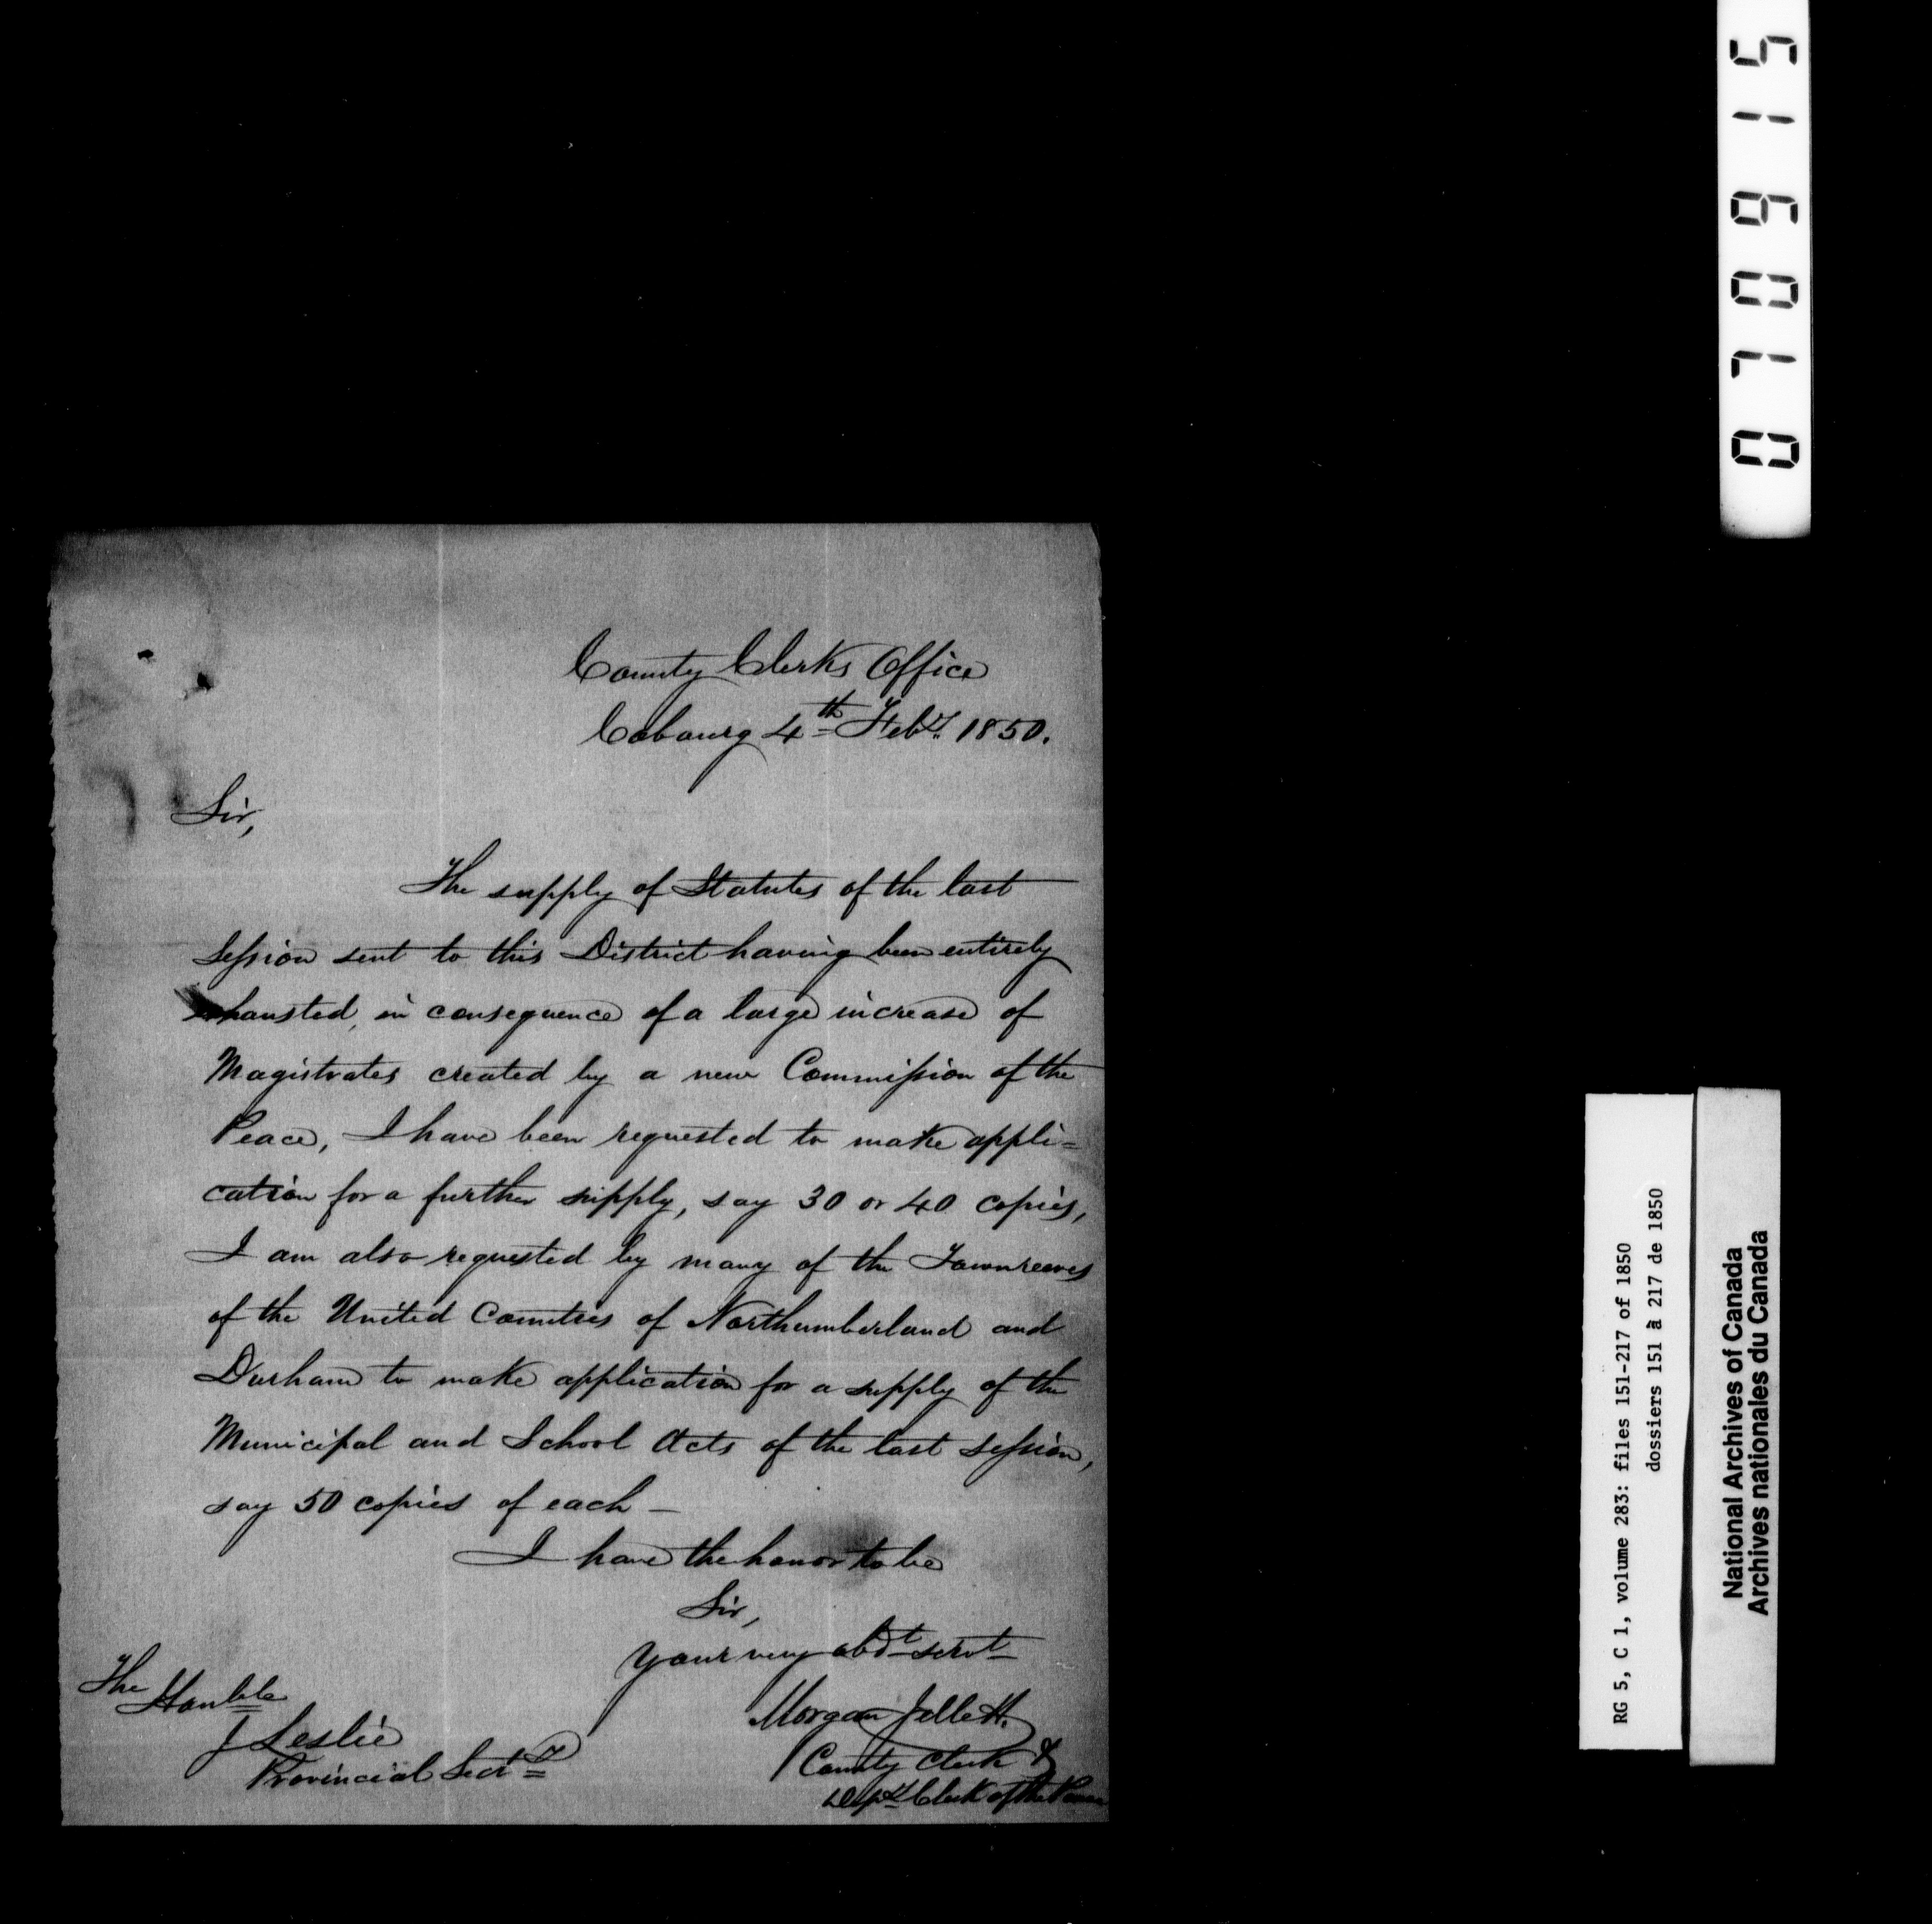 County Clerks Office
Cobourg 4th Feby. 1850.
Sir,
The supply of Statutes of the last
Session sent to this District having been entirely
exhausted, in consequence of a large increase of
Magistrates created by a new Commission of the
Peace, I have been requested to make appli=
cation for a further supply, say 30 or 40 copies,
I am also requested by many of the Townreeves
of the United Counties of Northumberland and
Durham to make application for a supply of the
Municipal and School Acts of the last Session,
say 50 copies of each —
I have the honor to be
Sir,
Your very obdt servt
Morgan Jellett.
County Clerk &
Depy Clerk of the Peace
The
Honble
J Leslie
Provincial Secty
070915
RG 5, C 1, volume 283: files 151-217 of 1850
dossiers 151 à 217 de 1850
National Archives of Canada
Archives nationales du Canada